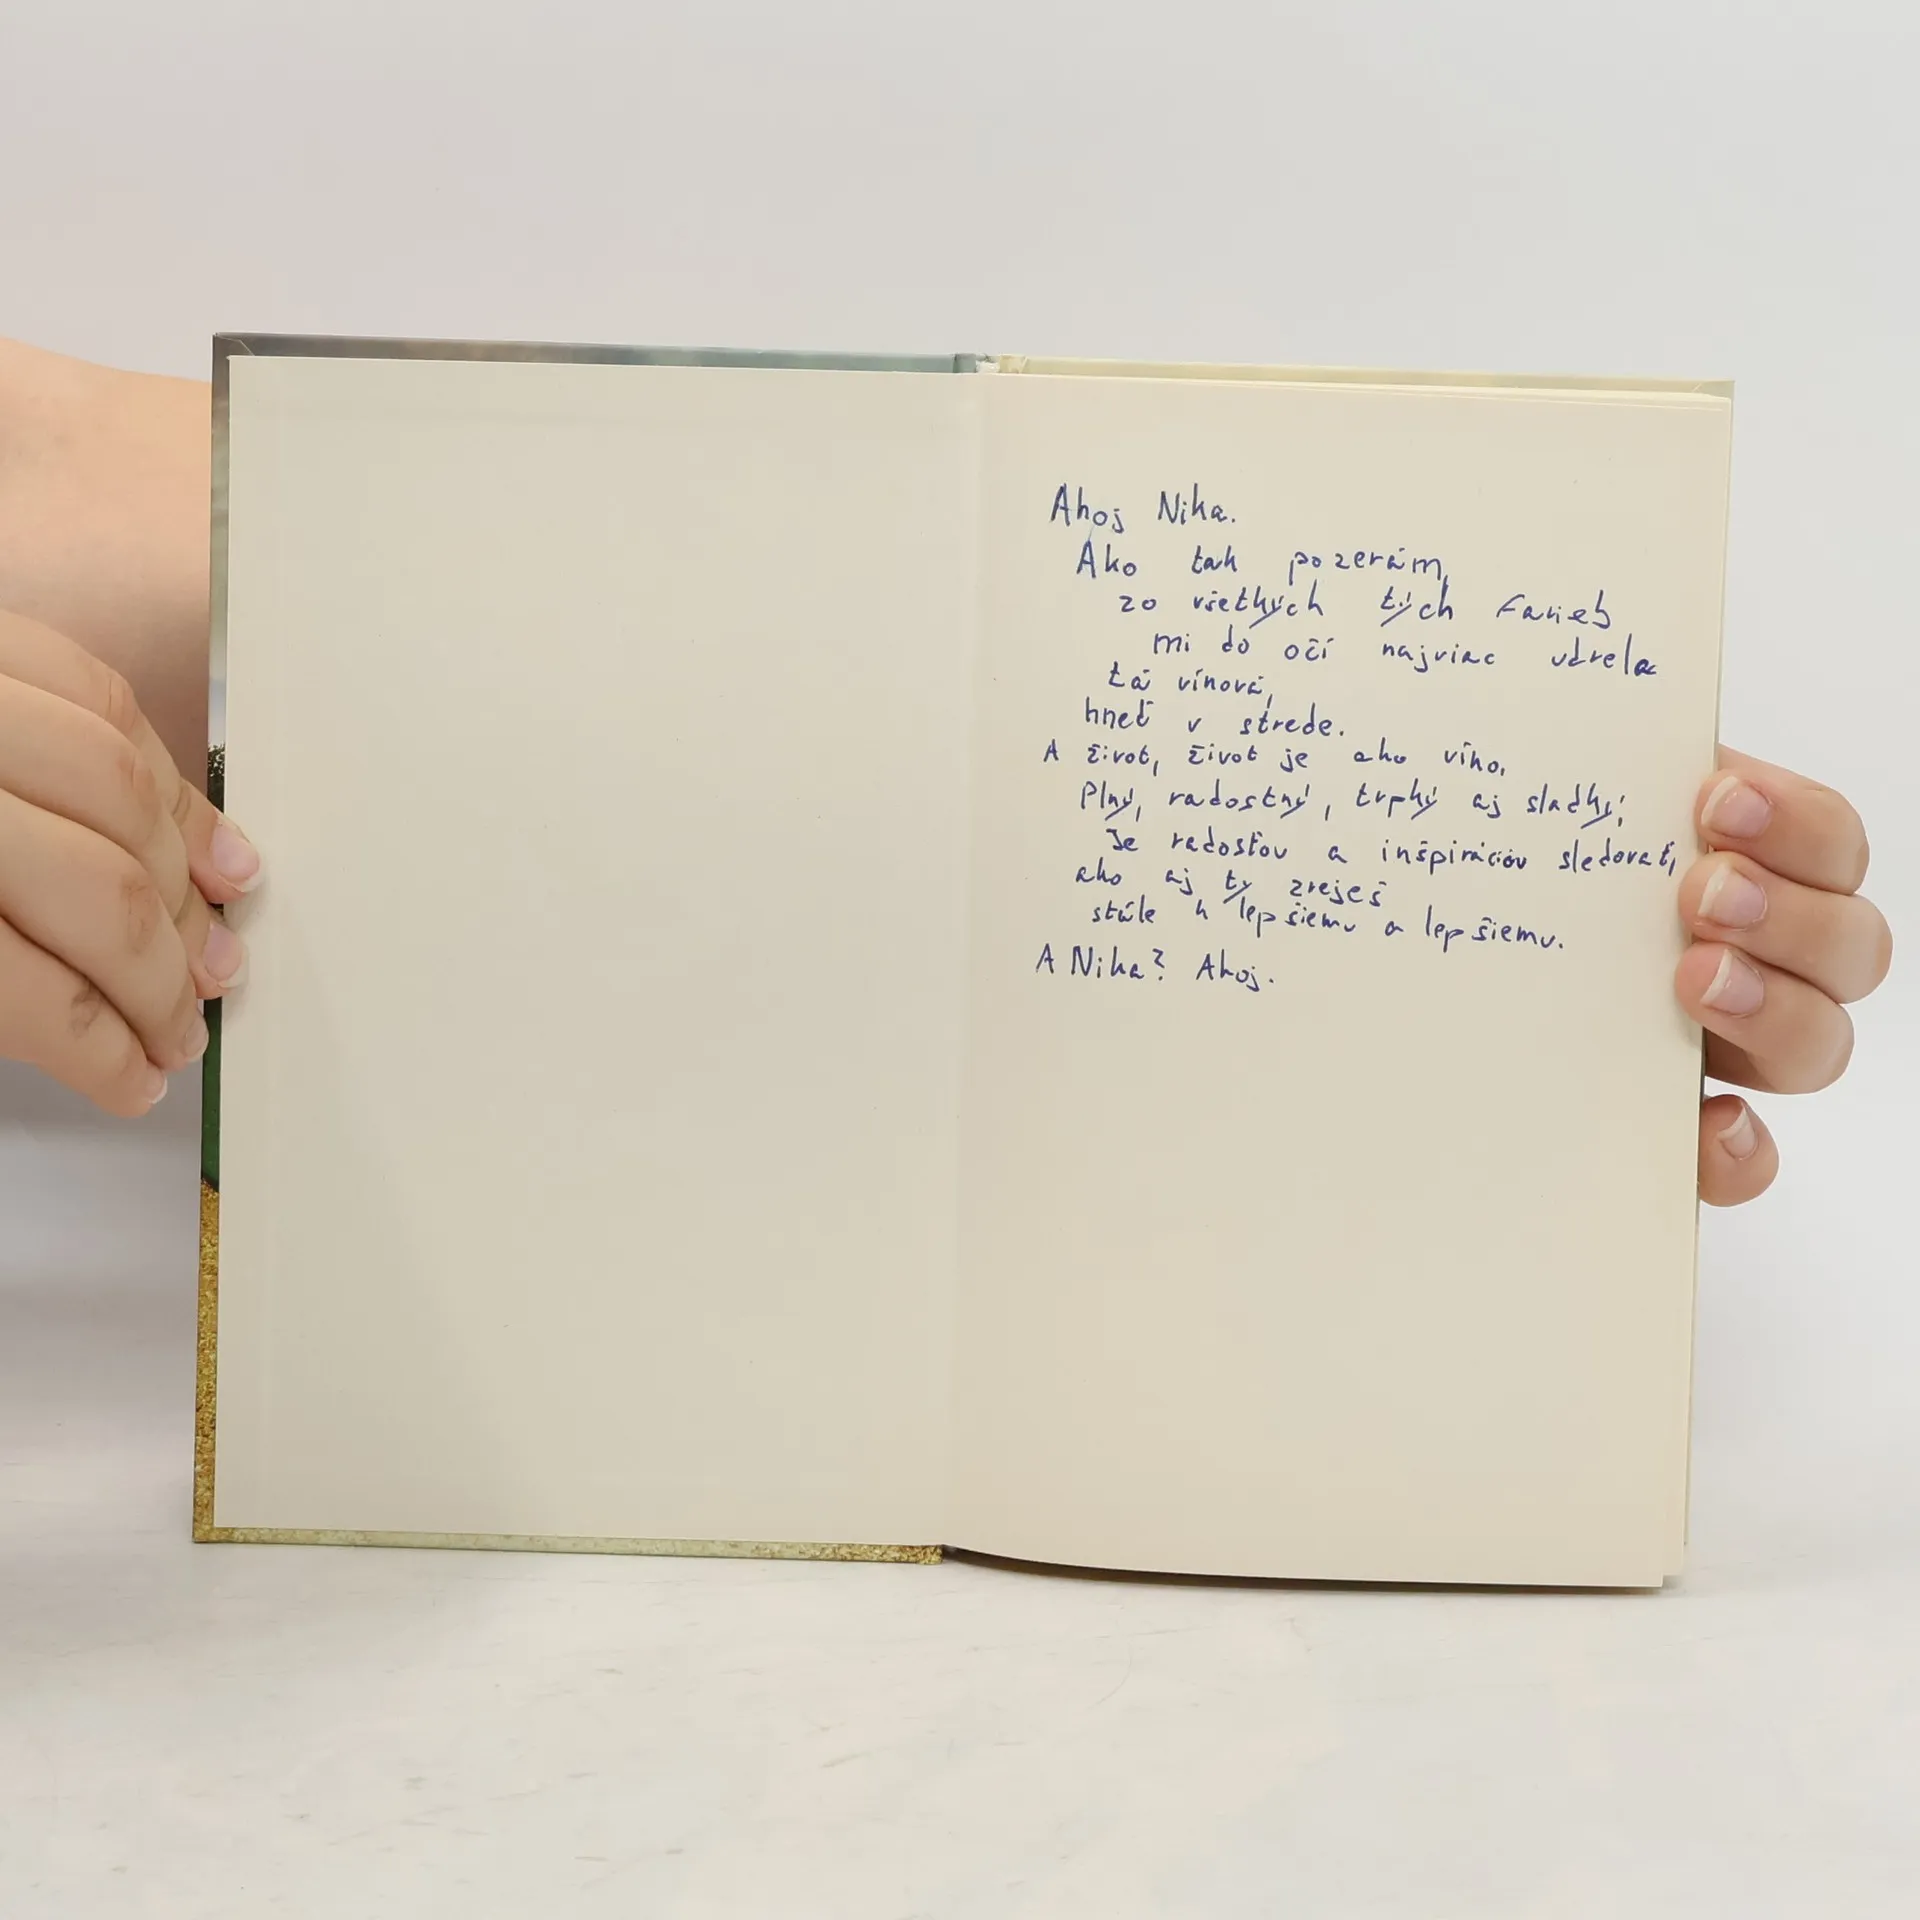 Ahoj Nika.
Ako tak pozerám,
zo všetkých tých farieb
mi do očí najviac udrela
tá vínová,
hneď v strede.
A život, život je ako víno.
Plný, radostný, trpký aj sladký;
Je radosťou a inšpiráciou sledovať,
ako aj ty zreješ
stále k lepšiemu a lepšiemu.
A Nika? Ahoj.